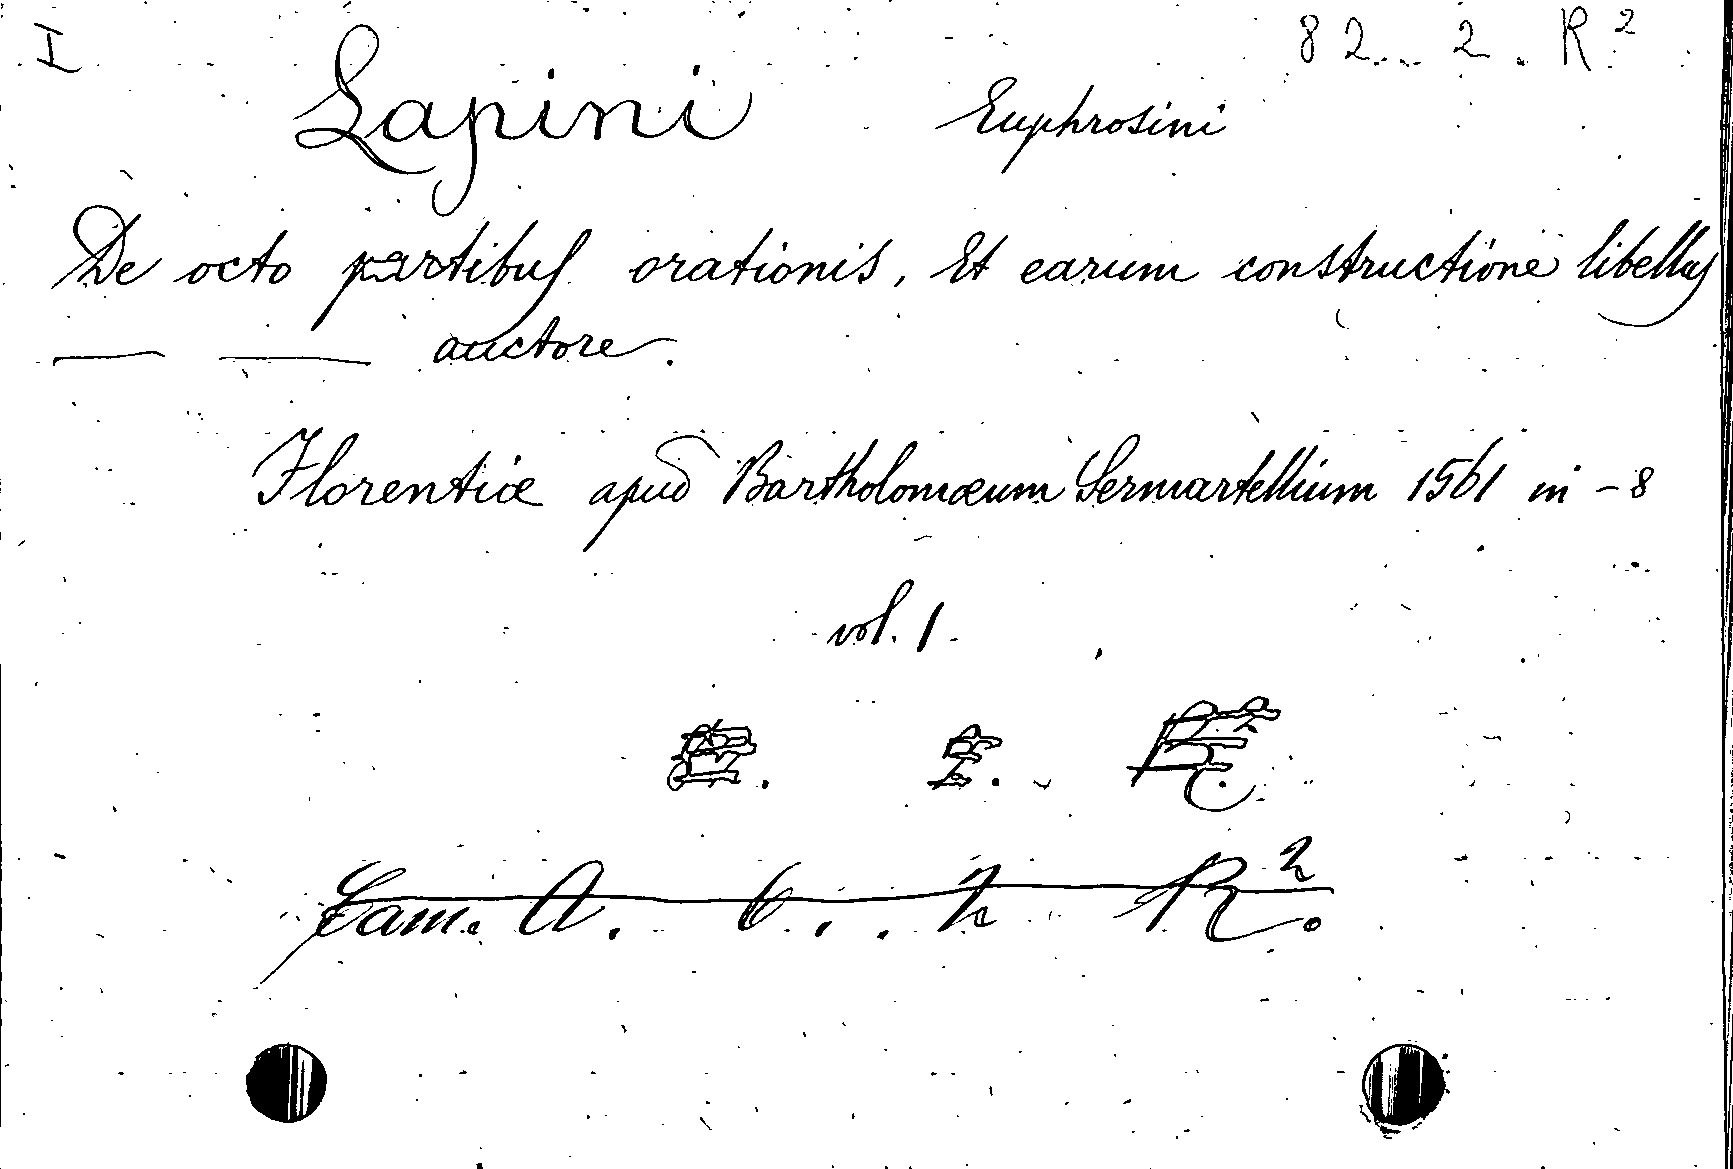 I 82 . 2 . R²
Lapini Euphrosini
De octo partibus orationis, Et earum constructione libellus
— — auctore.
Florentiæ apud Bartholomæum Sermartellium 1561 in - 8
vol. 1.
Cam. A. 6 . . 2 R².